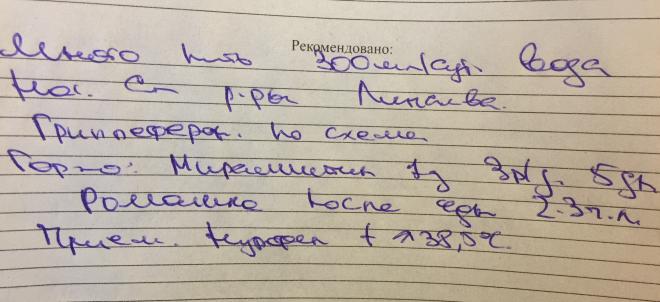 Рекомендовано:
Много пить 300мл/сут вода
р-ры
Гриппферон. по схеме
Горло: Мирамистин 3р/д. 5 дн
Ромашка после еды 2-3 р.
Прием. Нурофен t >38,5°C.